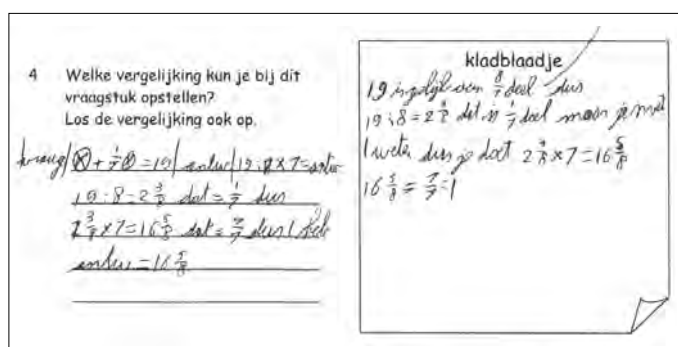 4 Welke vergelijking kun je bij dit
vraagstuk opstellen?
Los de vergelijking ook op.
vraag | ⊗ + 1/7 ⊗ = 19 | antw | 19 : 8 × 7 = antw
19 : 8 = 2 3/8 dat = 1/7 dus
2 3/8 × 7 = 16 5/8 dat = 7/7 dus 1 heb
antw = 16 5/8
kladblaadje
19 is gelijk aan 8/7 deel dus
19 : 8 = 2 3/8 dit is 1/7 deel maar je moet
1 weten dus je doet 2 3/8 × 7 = 16 5/8
16 5/8 = 7/7 = 1